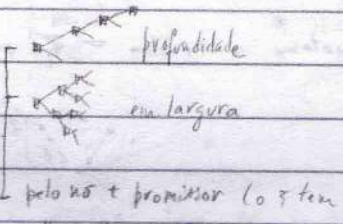 profundidade
em largura
pelo nó + promissor (o q tem